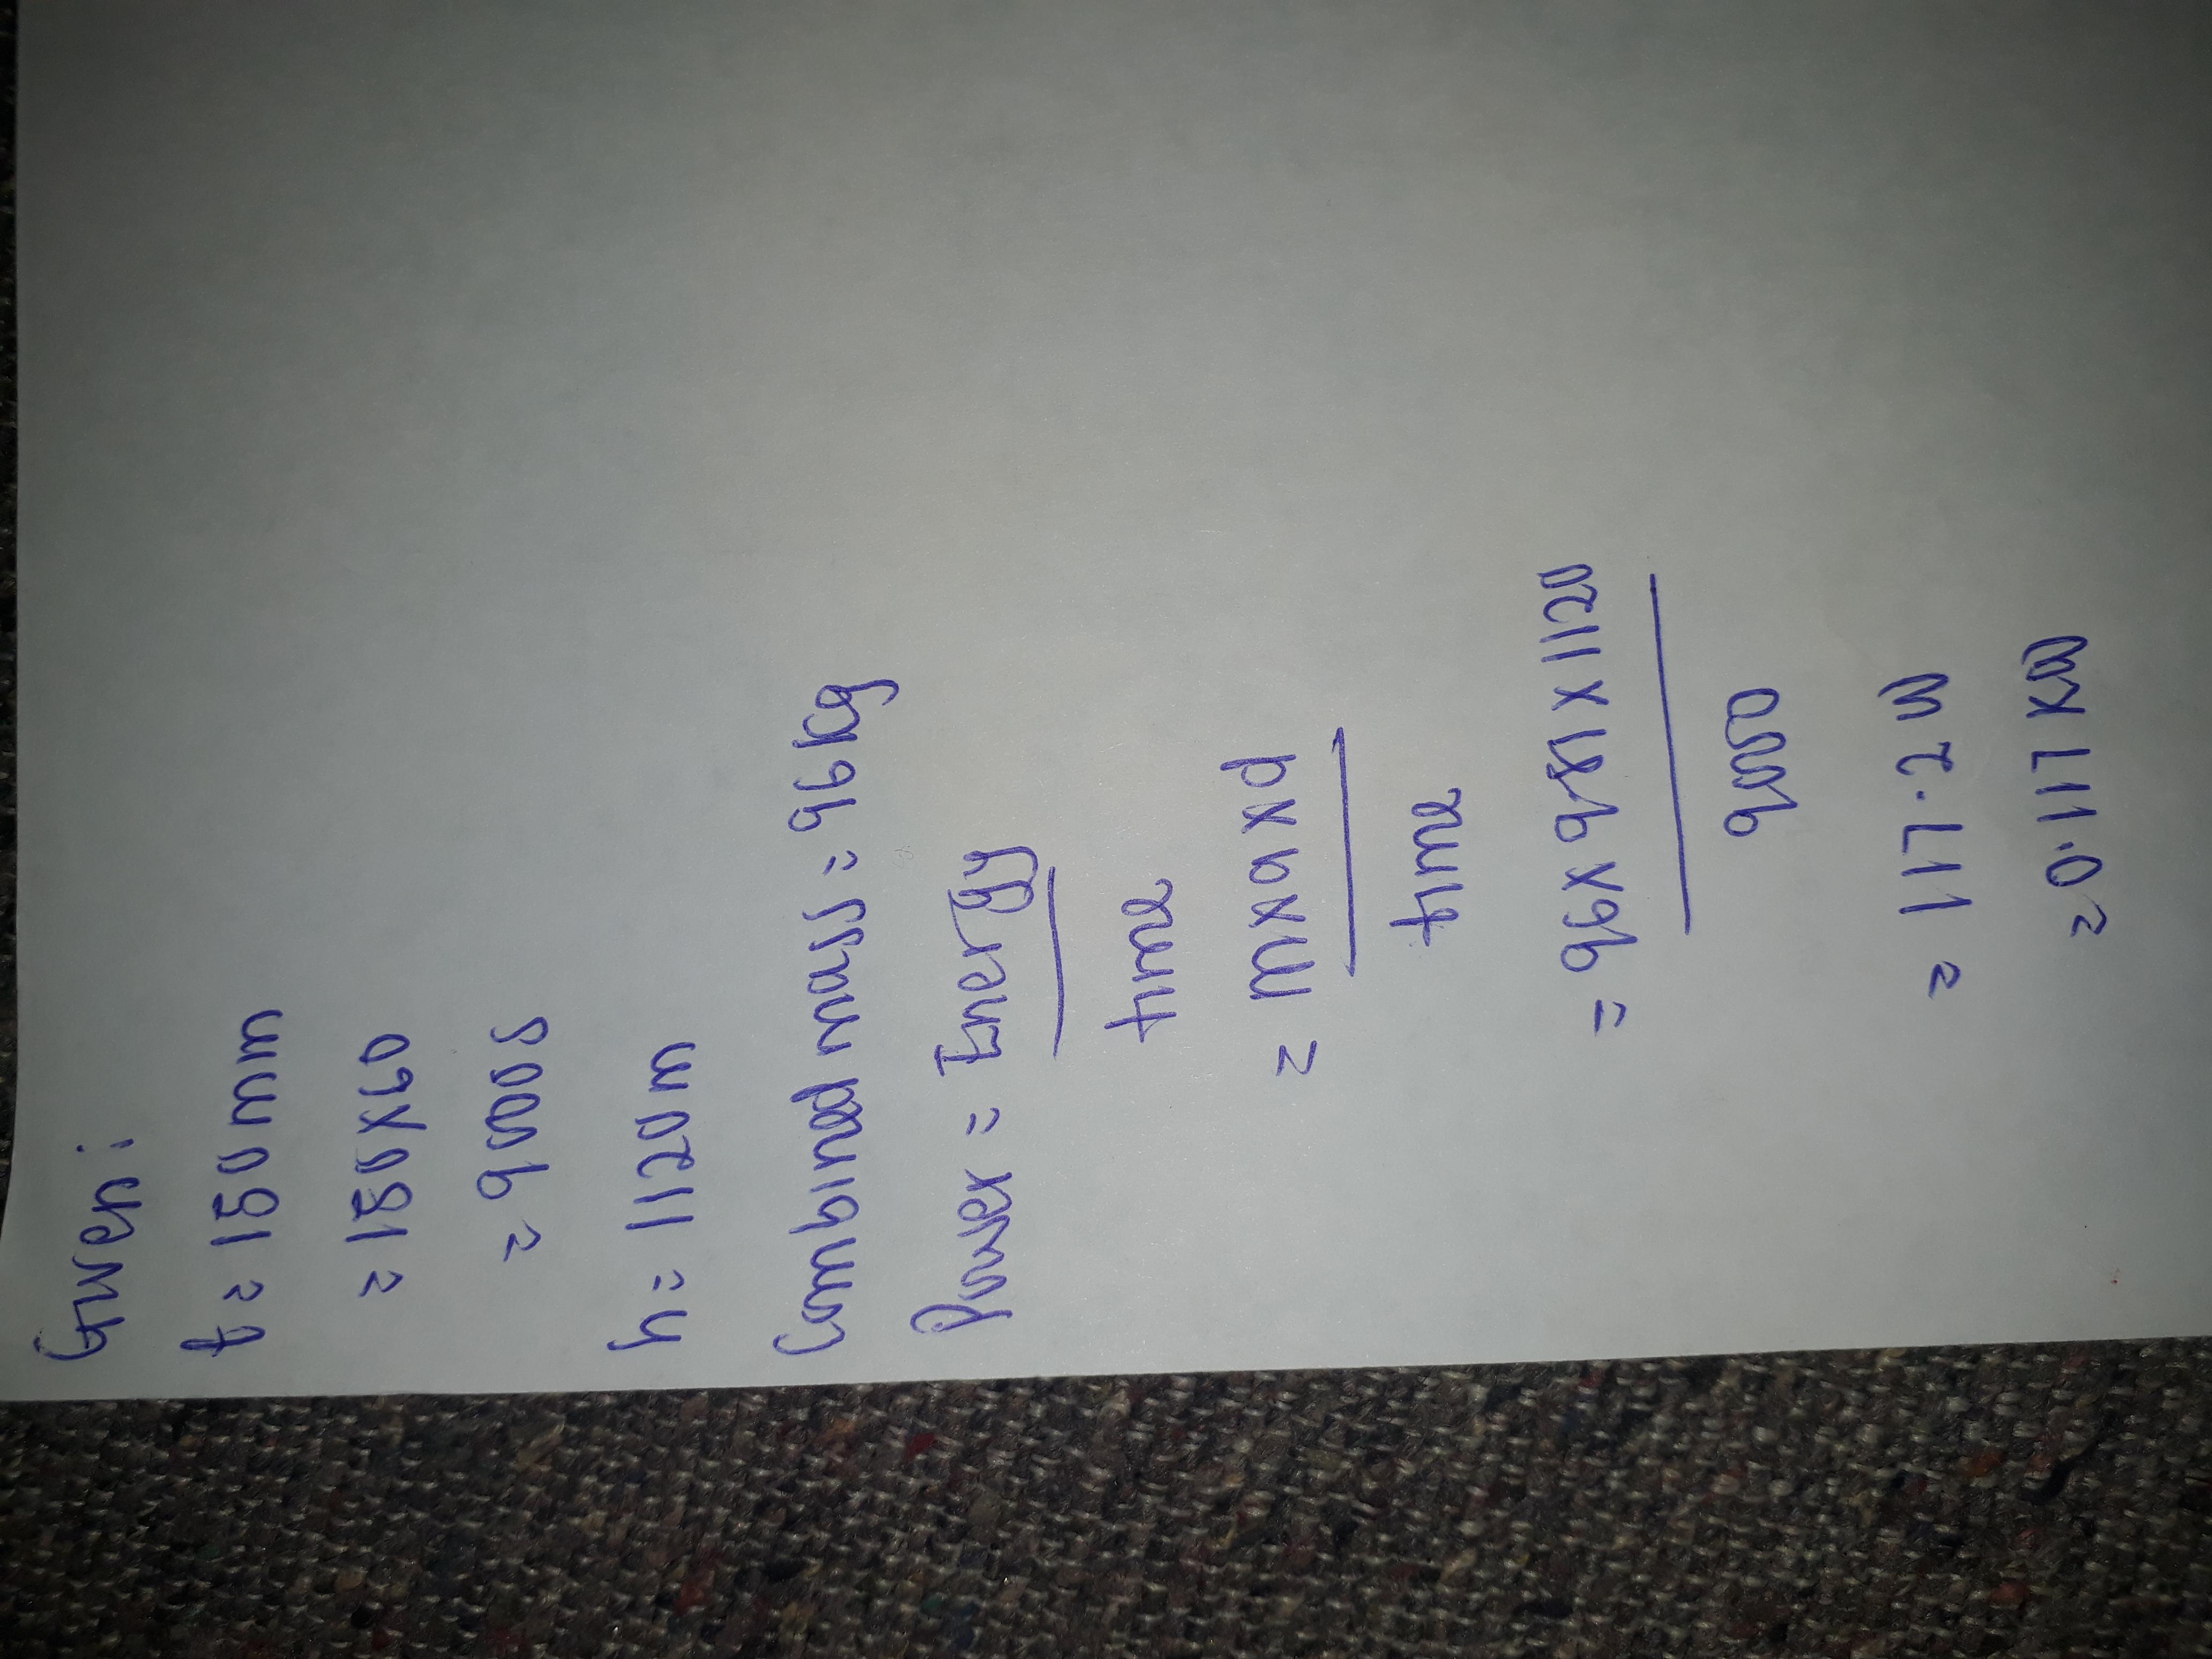 Given:
t = 150 min
= 150 x 60
= 9000 s
h = 1120 m
Combined mass = 96 kg
Power = Energy
time
= m x a x d
time
= 96 x 9.81 x 1120
9000
= 117.2 W
= 0.117 kW